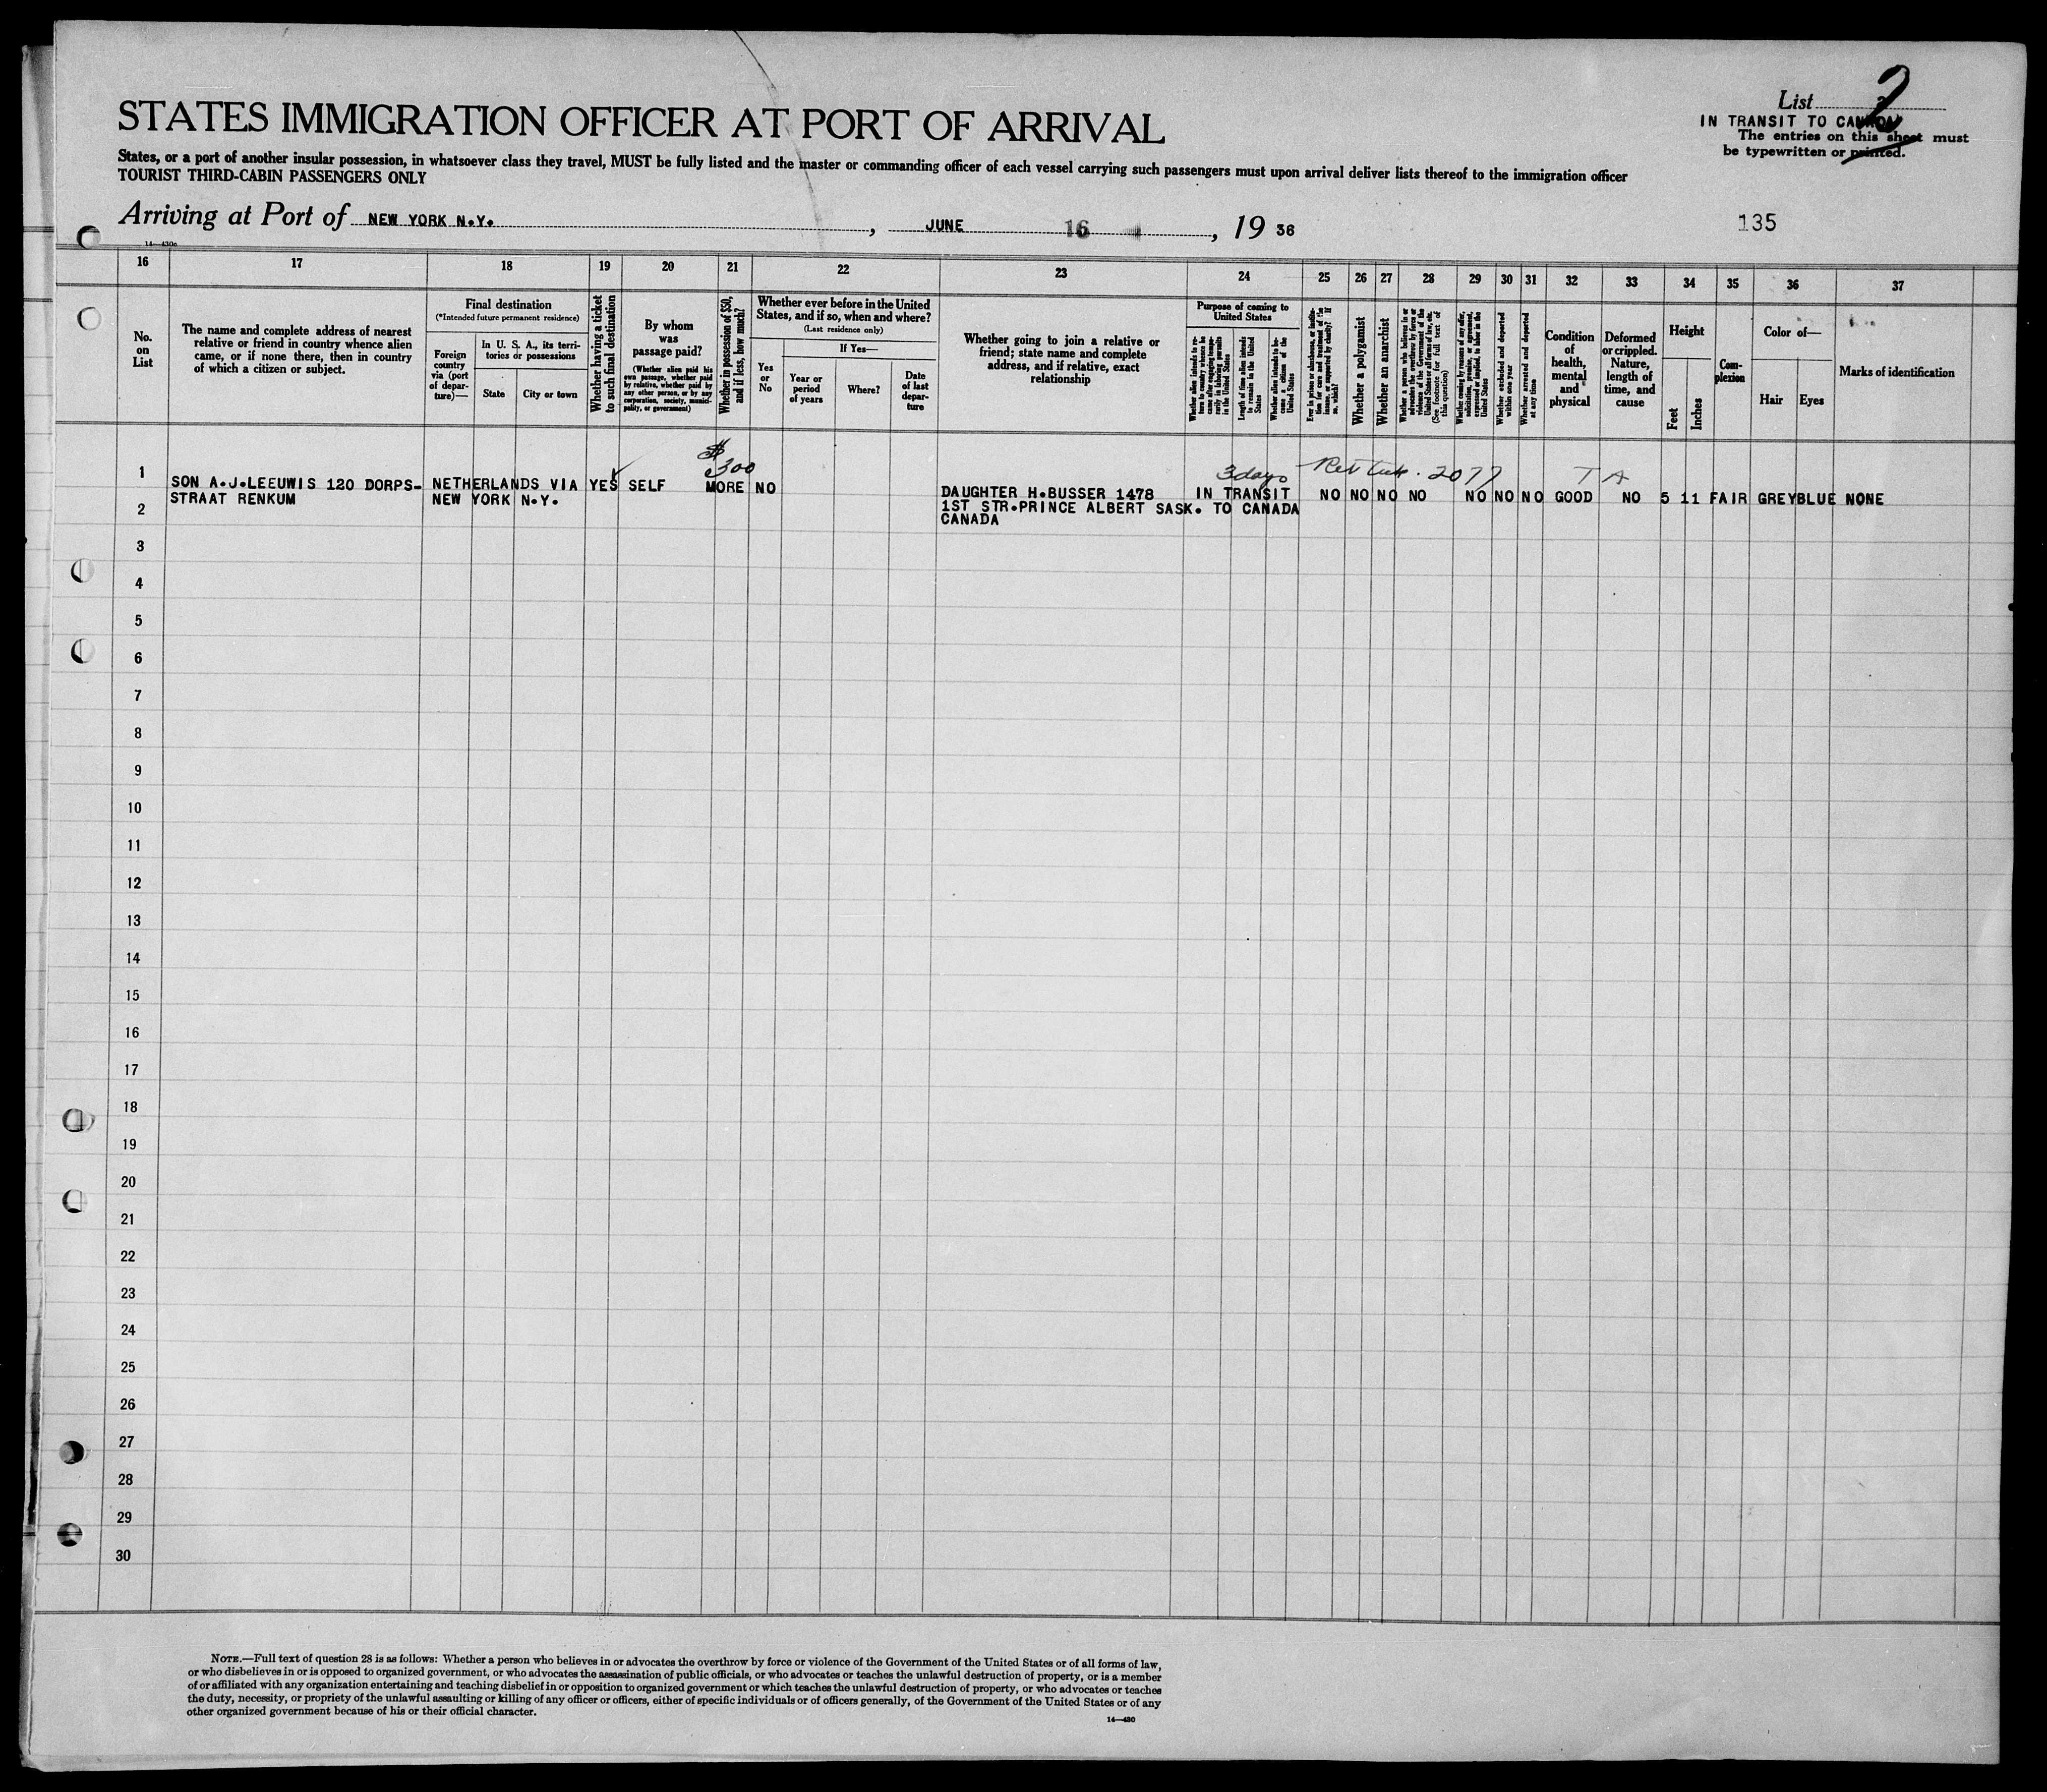 List 2
IN TRANSIT TO CANADA
The entries on this sheet must
be typewritten or printed.
STATES IMMIGRATION OFFICER AT PORT OF ARRIVAL
States, or a port of another insular possession, in whatsoever class they travel, MUST be fully listed and the master or commanding officer of each vessel carrying such passengers must upon arrival deliver lists thereof to the immigration officer
TOURIST THIRD-CABIN PASSENGERS ONLY
Arriving at Port of NEW YORK N.Y. , JUNE 16 , 19 36
135
14—430c
16 17 18 19 20 21 22 23 24 25 26 27 28 29 30 31 32 33 34 35 36 37
No. on List
The name and complete address of nearest relative or friend in country whence alien came, or if none there, then in country of which a citizen or subject.
Final destination
(*Intended future permanent residence)
Foreign country via (port of departure)—
In U. S. A., its territories or possessions
State
City or town
Whether having a ticket to such final destination
By whom was passage paid?
(Whether alien paid his own passage, whether paid by relative, whether paid by any other person, or by any corporation, society, municipality, or government)
Whether in possession of $50, and if less, how much?
Whether ever before in the United States, and if so, when and where?
(Last residence only)
Yes or No
If Yes—
Year or period of years
Where?
Date of last departure
Whether going to join a relative or friend; state name and complete address, and if relative, exact relationship
Purpose of coming to United States
Whether alien intends to return to country whence he came after engaging temporarily in laboring pursuits in the United States
Length of time alien intends to remain in the United States
Whether alien intends to become a citizen of the United States
Ever in prison or almshouse, or institution for care and treatment of the insane, or supported by charity? If so, which?
Whether a polygamist
Whether an anarchist
(See footnote for full text of this question)
Whether coming by reason of any offer, solicitation, promise, or agreement, expressed or implied, to labor in the United States
Whether excluded and deported within one year
Whether arrested and deported at any time
Condition of health, mental and physical
Deformed or crippled. Nature, length of time, and cause
Height
Feet
Inches
Complexion
Color of—
Hair
Eyes
Marks of identification
$
300
3 days
2077
T A
1
SON A.J.LEEUWIS 120 DORPS- NETHERLANDS VIA YES SELF MORE NO
STRAAT RENKUM NEW YORK N.Y.
DAUGHTER H.BUSSER 1478 IN TRANSIT NO NO NO NO NO NO NO GOOD NO 5 11 FAIR GREY BLUE NONE
2
1ST STR.PRINCE ALBERT SASK. TO CANADA
CANADA
3
4
5
6
7
8
9
10
11
12
13
14
15
16
17
18
19
20
21
22
23
24
25
26
27
28
29
30
NOTE.—Full text of question 28 is as follows: Whether a person who believes in or advocates the overthrow by force or violence of the Government of the United States or of all forms of law,
or who disbelieves in or is opposed to organized government, or who advocates the assassination of public officials, or who advocates or teaches the unlawful destruction of property, or is a member
of or affiliated with any organization entertaining and teaching disbelief in or opposition to organized government or which teaches the unlawful destruction of property, or who advocates or teaches
the duty, necessity, or propriety of the unlawful assaulting or killing of any officer or officers, either of specific individuals or of officers generally, of the Government of the United States or of any
other organized government because of his or their official character.
14—430